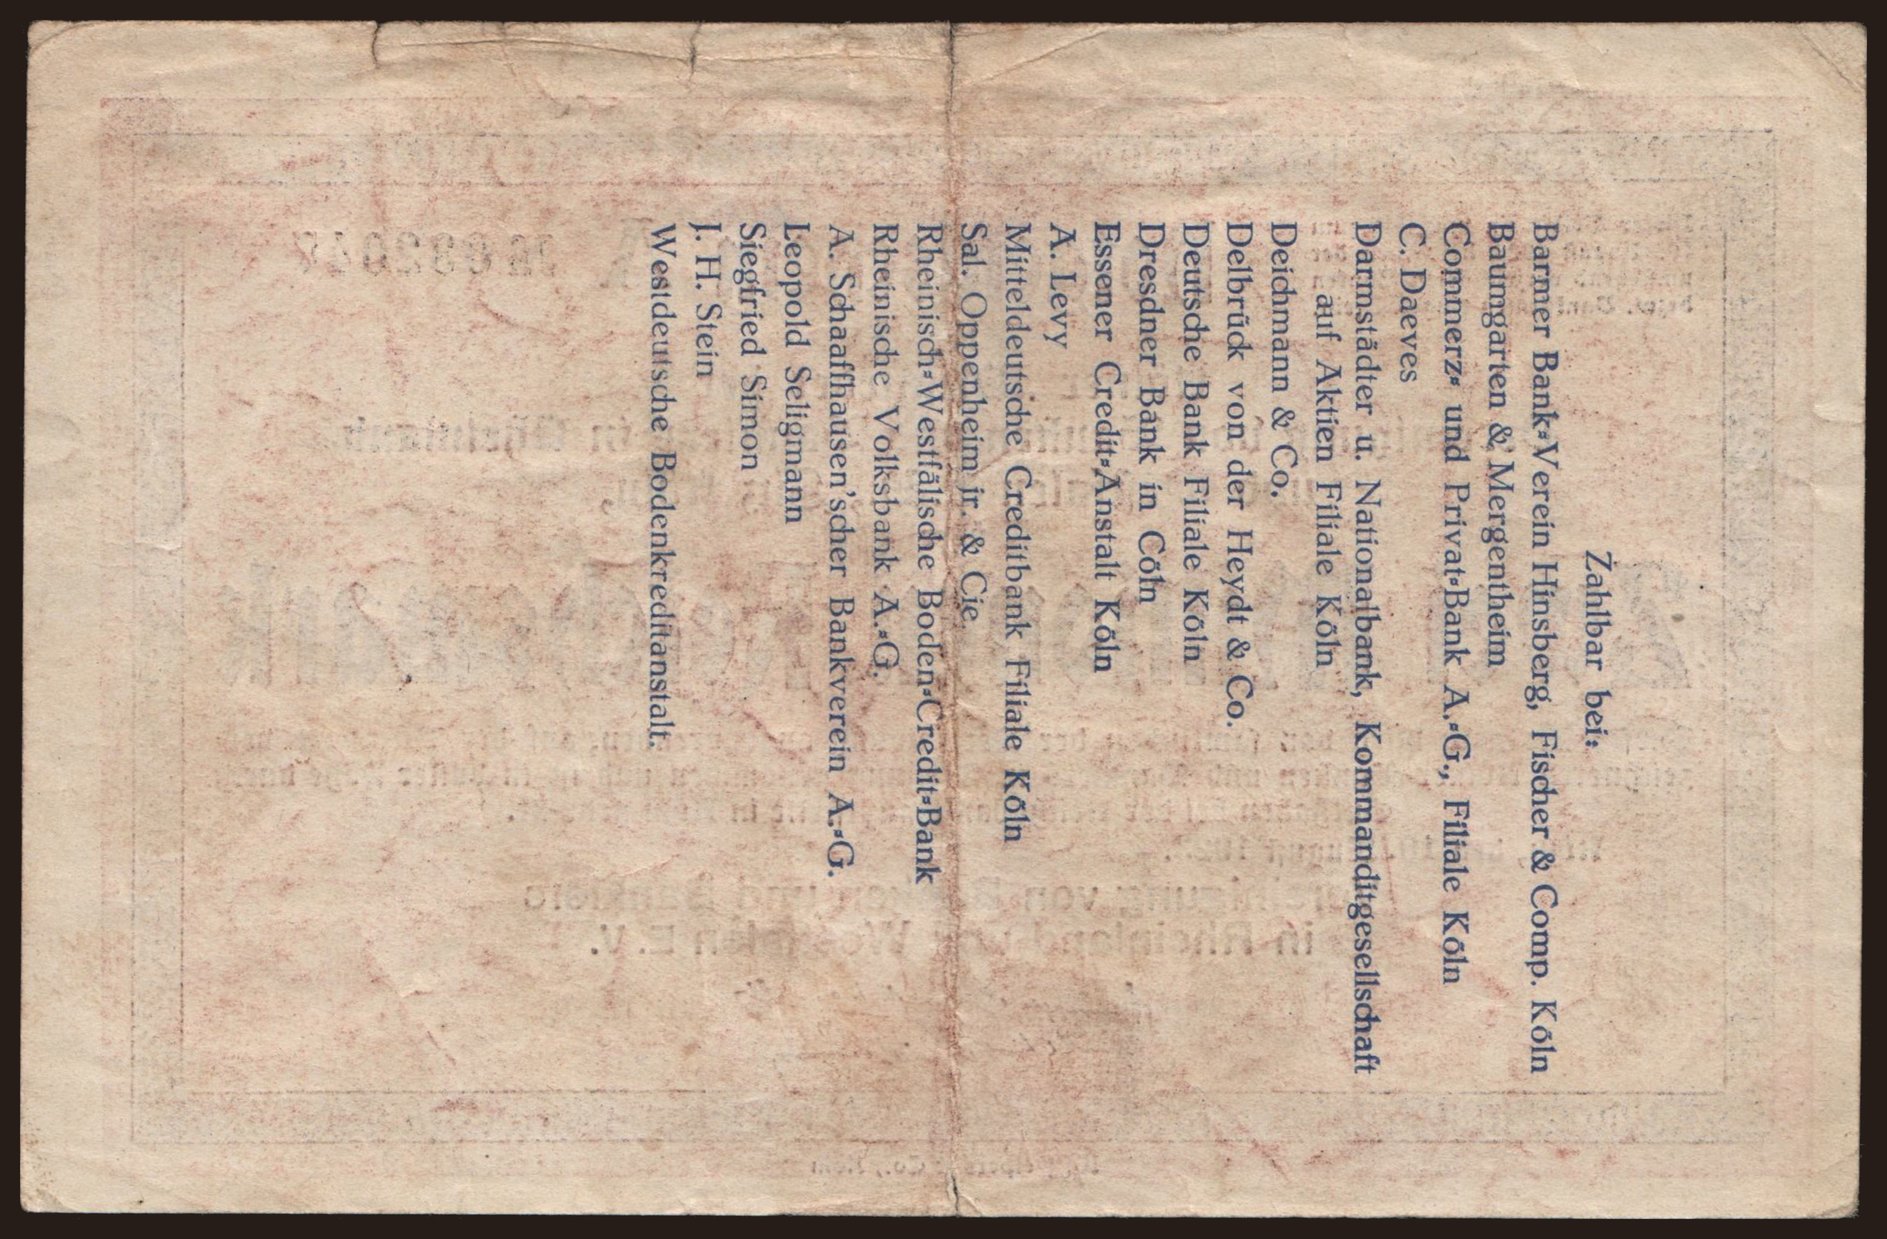 Zahlbar bei:
Barmer Bank-Verein Hinsberg, Fischer & Comp. Köln
Baumgarten & Mergentheim
Commerz- und Privat-Bank A.-G., Filiale Köln
C. Daeves
Darmstädter u. Nationalbank, Kommanditgesellschaft
auf Aktien Filiale Köln
Deichmann & Co.
Delbrück von der Heydt & Co.
Deutsche Bank Filiale Köln
Dresdner Bank in Cöln
Essener Credit-Anstalt Köln
A. Levy
Mitteldeutsche Creditbank Filiale Köln
Sal. Oppenheim jr. & Cie.
Rheinisch-Westfälische Boden-Credit-Bank
Rheinische Volksbank A.-G.
A. Schaaffhausen'scher Bankverein A.-G.
Leopold Seligmann
Siegfried Simon
J. H. Stein
Westdeutsche Bodenkreditanstalt.